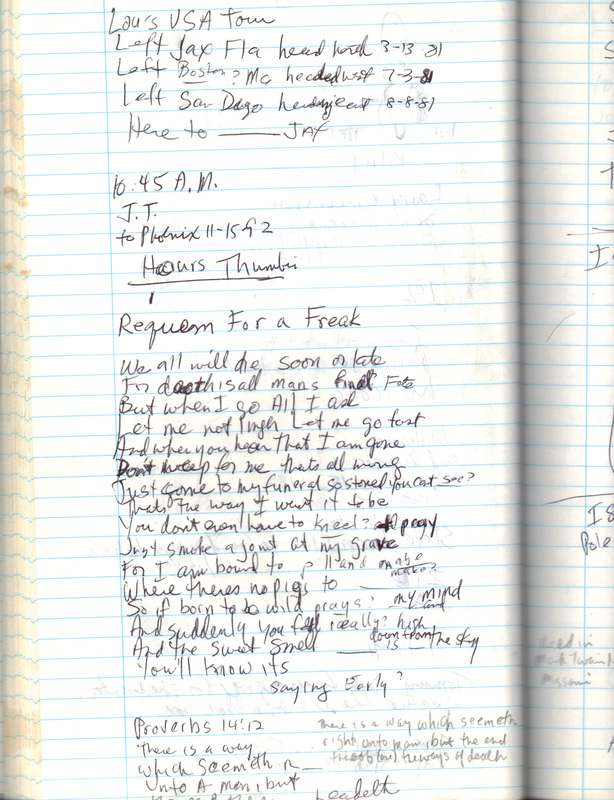 Lou's USA Tour
Left Jax Fla head north 3-13-81
Left Boston? Ma headed west 7-3-81
Left San Dago heading east 8-8-81
Here to ______ JAX
10:45 A.M.
J.T.
to Phoenix 11-15 82
Hours Thumbin
Requem For a Freak
We all will die soon or late
For death is all mans final? Fate
But when I go All I ask
Let me not linger Let me go fast
And when you hear that I am gone
Don't weep for me thats all wrong
Just come to my funeral so stoned you cat see?
Thats the way I want it to be
You don't even have to kneel? pray
Just smoke a joint at my grave
For I am bound to and maybe make?
Where theres no pigs to ______
So if born to be wild prays? my mind
And suddenly you feel really? high
And the sweet smell ____ is ____ down from the sky
You'll know its
saying Early?
Proverbs 14:12
There is a way
which seemeth r__
unto A man, but
Leadeth
There is a way which seemeth
right unto man, but the end
the ways of death
I
I 8
Pole